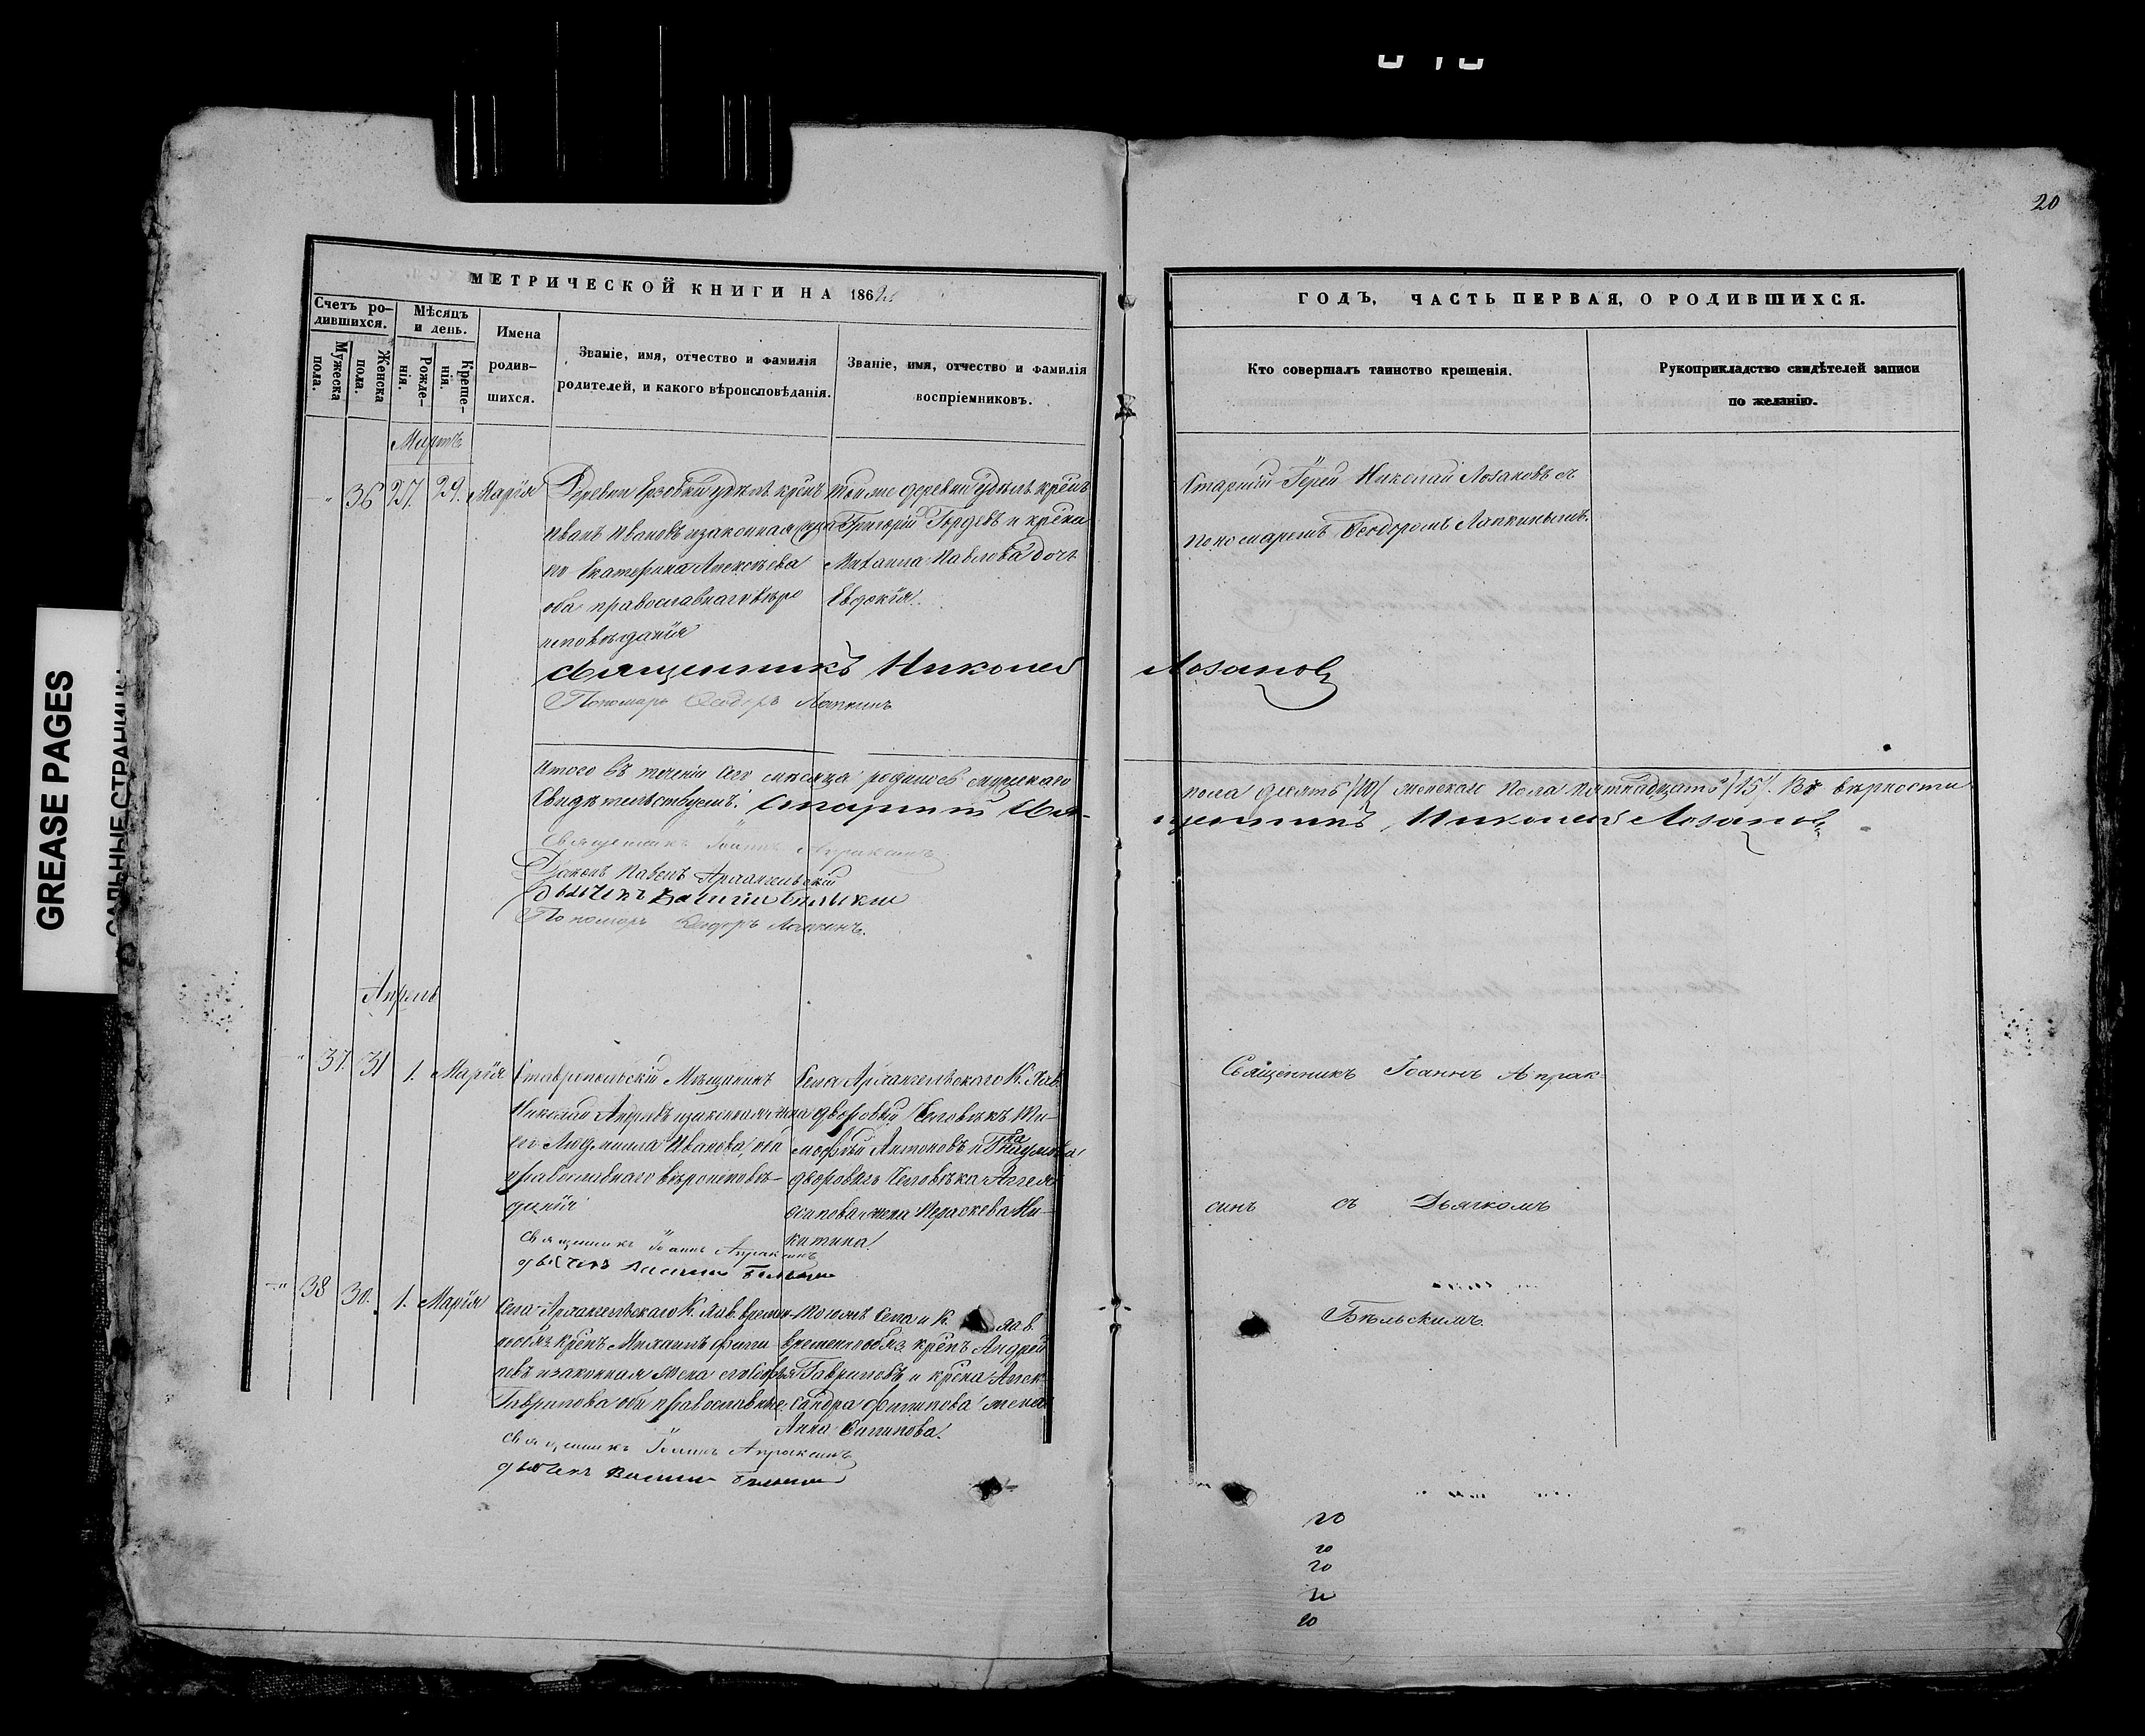 20
МЕТРИЧЕСКОЙ КНИГИ НА 186
ГОДЪ, ЧАСТЬ ПЕРВАЯ, О РОДИВШИХСЯ.
Счетъ ро-
дившихся.
Мужеска
пола.
Женска
пола.
Мѣсяцъ
и день.
Рожде-
нія.
Креще-
нія.
Имена
родив-
шихся.
Званіе, имя, отчество и фамилія
родителей, и какого вѣроисповѣданія.
Званіе, имя, отчество и фамилія
воспріемниковъ.
Кто совершалъ таинство крещенія.
Рукоприкладство свидѣтелей записи
по желанію.
Мартъ
36 27. 29. Марія
Деревни крѣнъ
Иванъ Ивановъ и законная жена
его Екатерина Алексѣева
оба православнаго вѣро
исповѣданія
Той же деревни крѣнъ
Григорій Гордѣевъ и крѣна
Михаила Павлова дочь
Евдокія.
Старшій Іерей Николай Лозановъ съ
пономаремъ Ѳеодоромъ Лапкинымъ.
Священникъ Николай Лозановъ
Пономарь Ѳеодоръ Лапкинъ
Итого въ теченіи сего мѣсяца родилось мужескаго пола десять /10/ женскаго пола пятнадцать /15/. Въ вѣрности
Свидѣтельствуемъ: Старшій Свя-щенникъ, Николай Лозановъ
Священникъ Іоаннъ Апраксинъ
Діаконъ Павелъ Архангельскій
Дьячекъ Василій Бѣльскій
Пономарь Ѳеодоръ Лапкинъ.
Апрель
37. 31 1. Марія
Ставропольскій Мѣщанинъ
Николай Андреевъ и законная жена
его Людмила Иванова, оба
православнаго вѣроисповѣ-
данія
Села Архангельскаго К. Лав.
дворовый Человѣкъ Ти-
мофѣй Антоновъ и
двороваго Человѣка
Осипова жена Параскева Ни-
китина.
Священникъ Іоаннъ Апрак-
синъ съ Дьячкомъ
Бѣльскимъ.
Священникъ Іоаннъ Апраксинъ
дьячекъ Василій Бѣльскій
38 30. 1. Марія
Села Архангельскаго К. Лав. времен-
крѣнъ Михаилъ Филип
повъ и законная жена его
Гаврилова оба православные
Того же Села и К. Лав.
временнообяз. крѣнъ Андрей
Гавриловъ и крѣна Алек-
сандра Филипова жена
Анна
Священникъ Іоаннъ Апраксинъ
дьячекъ Василій Бѣльскій
20
20
20
20
20
GREASE PAGES
САЛЬНЫЕ СТРАНИЦЫ